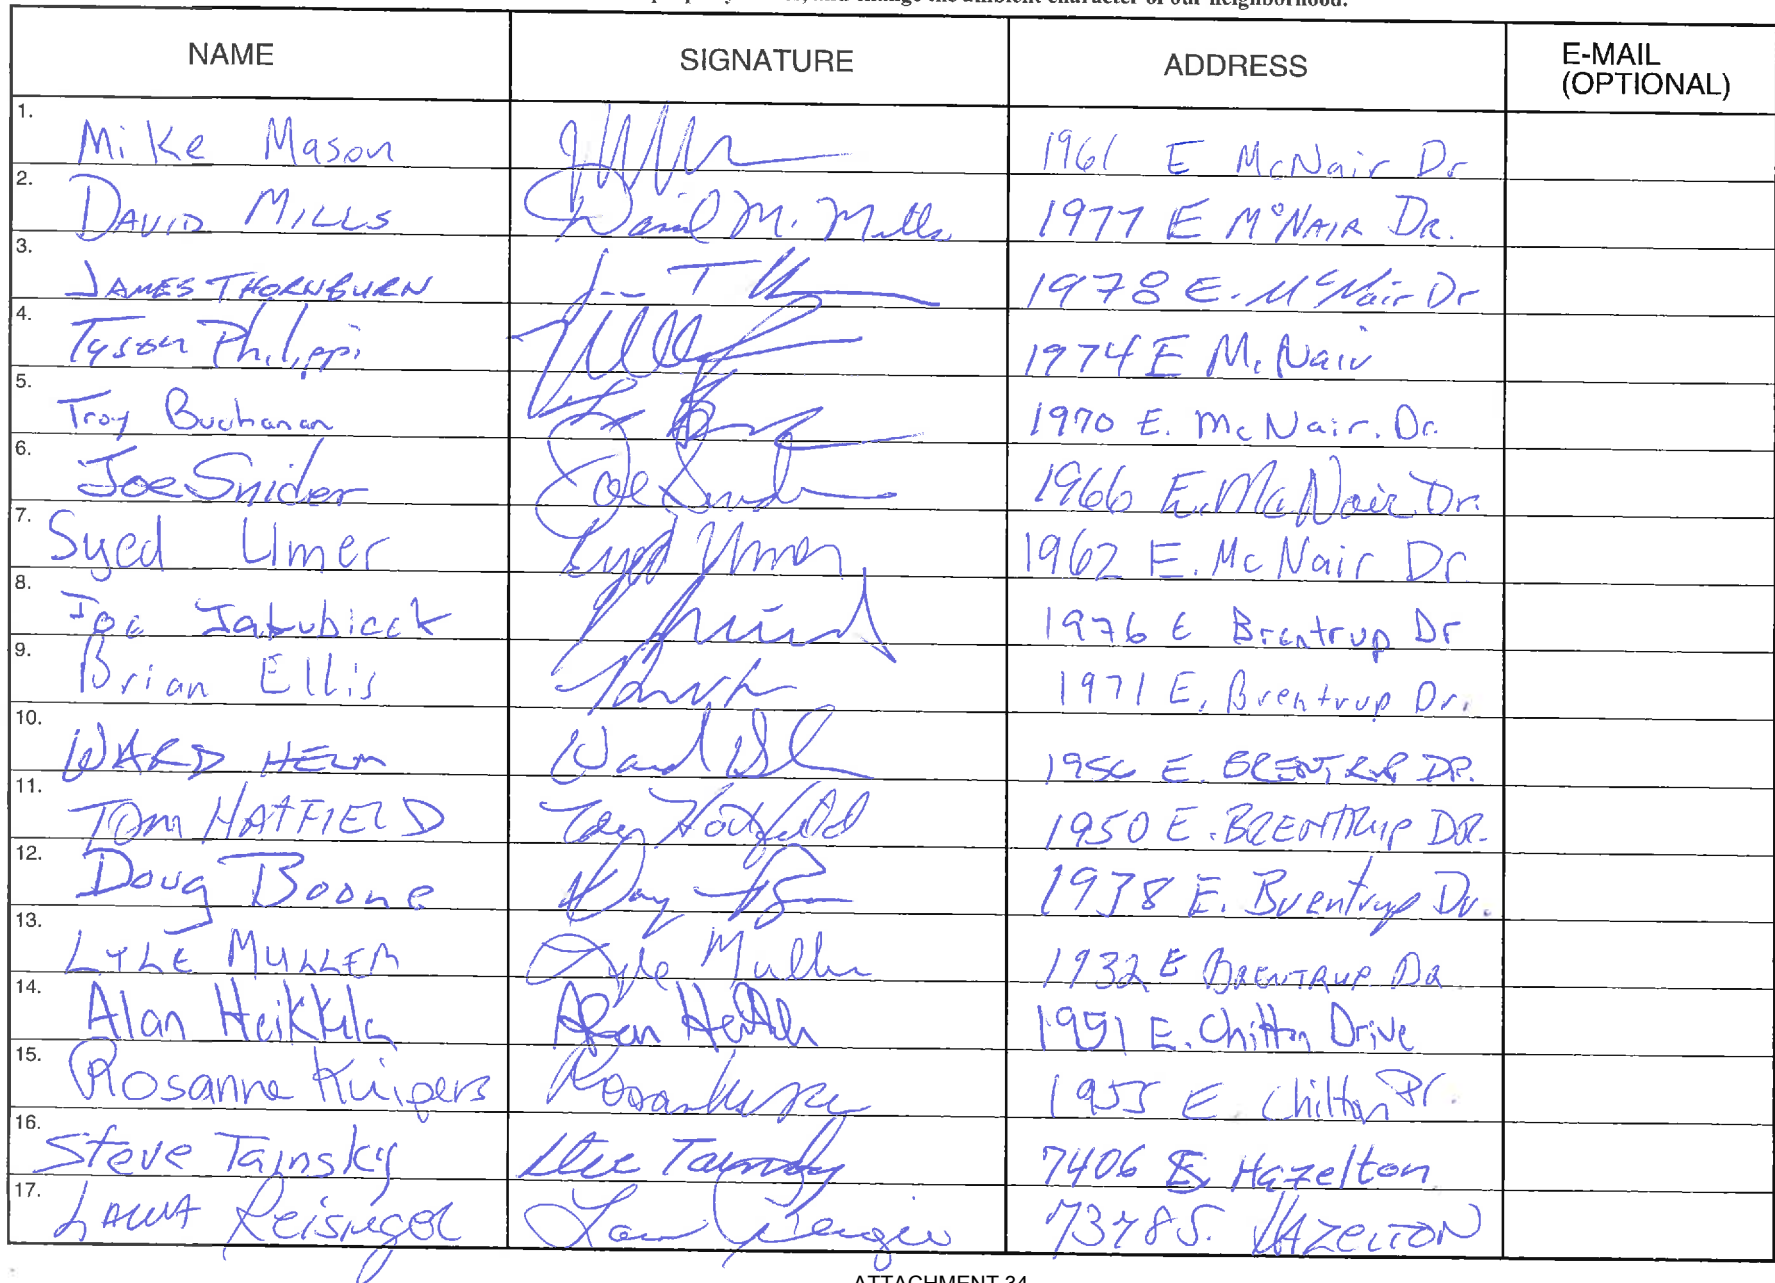 property values, and change the ambient character of our neighborhood.
NAME SIGNATURE ADDRESS E-MAIL (OPTIONAL)
1. Mike Mason 1961 E McNair Dr
2. DAVID MILLS David M. Mills 1977 E McNAIR DR.
3. JAMES THORNBURN 1978 E. McNair Dr
4. Tyson Philippi 1974 E McNair
5. Troy Buchanan 1970 E. McNair. Dr.
6. Joe Snider Joe Snider 1966 E. McNair Dr.
7. Syed Umer Syed Umer 1962 E. McNair Dr
8. Joe Jakubieck 1976 E Brentrup Dr
9. Brian Ellis 1971 E. Brentrup Dr.
10. WARD HELM Ward 1956 E. BRENTRUP DR.
11. TOM HATFIELD Tom Hatfield 1950 E. BRENTRUP DR.
12. Doug Boone Doug 1938 E. Brentrup Dr.
13. LYLE MULLER Lyle Muller 1932 E BRENTRUP DR
14. Alan Heikkila Alan 1951 E. Chilton Drive
15. Rosanne Kuipers 1955 E Chilton Dr.
16. Steve Tainsky Steve Tainsky 7406 S. Hazelton
17. Reisiger 7378 S. HAZELTON
ATTACHMENT 34